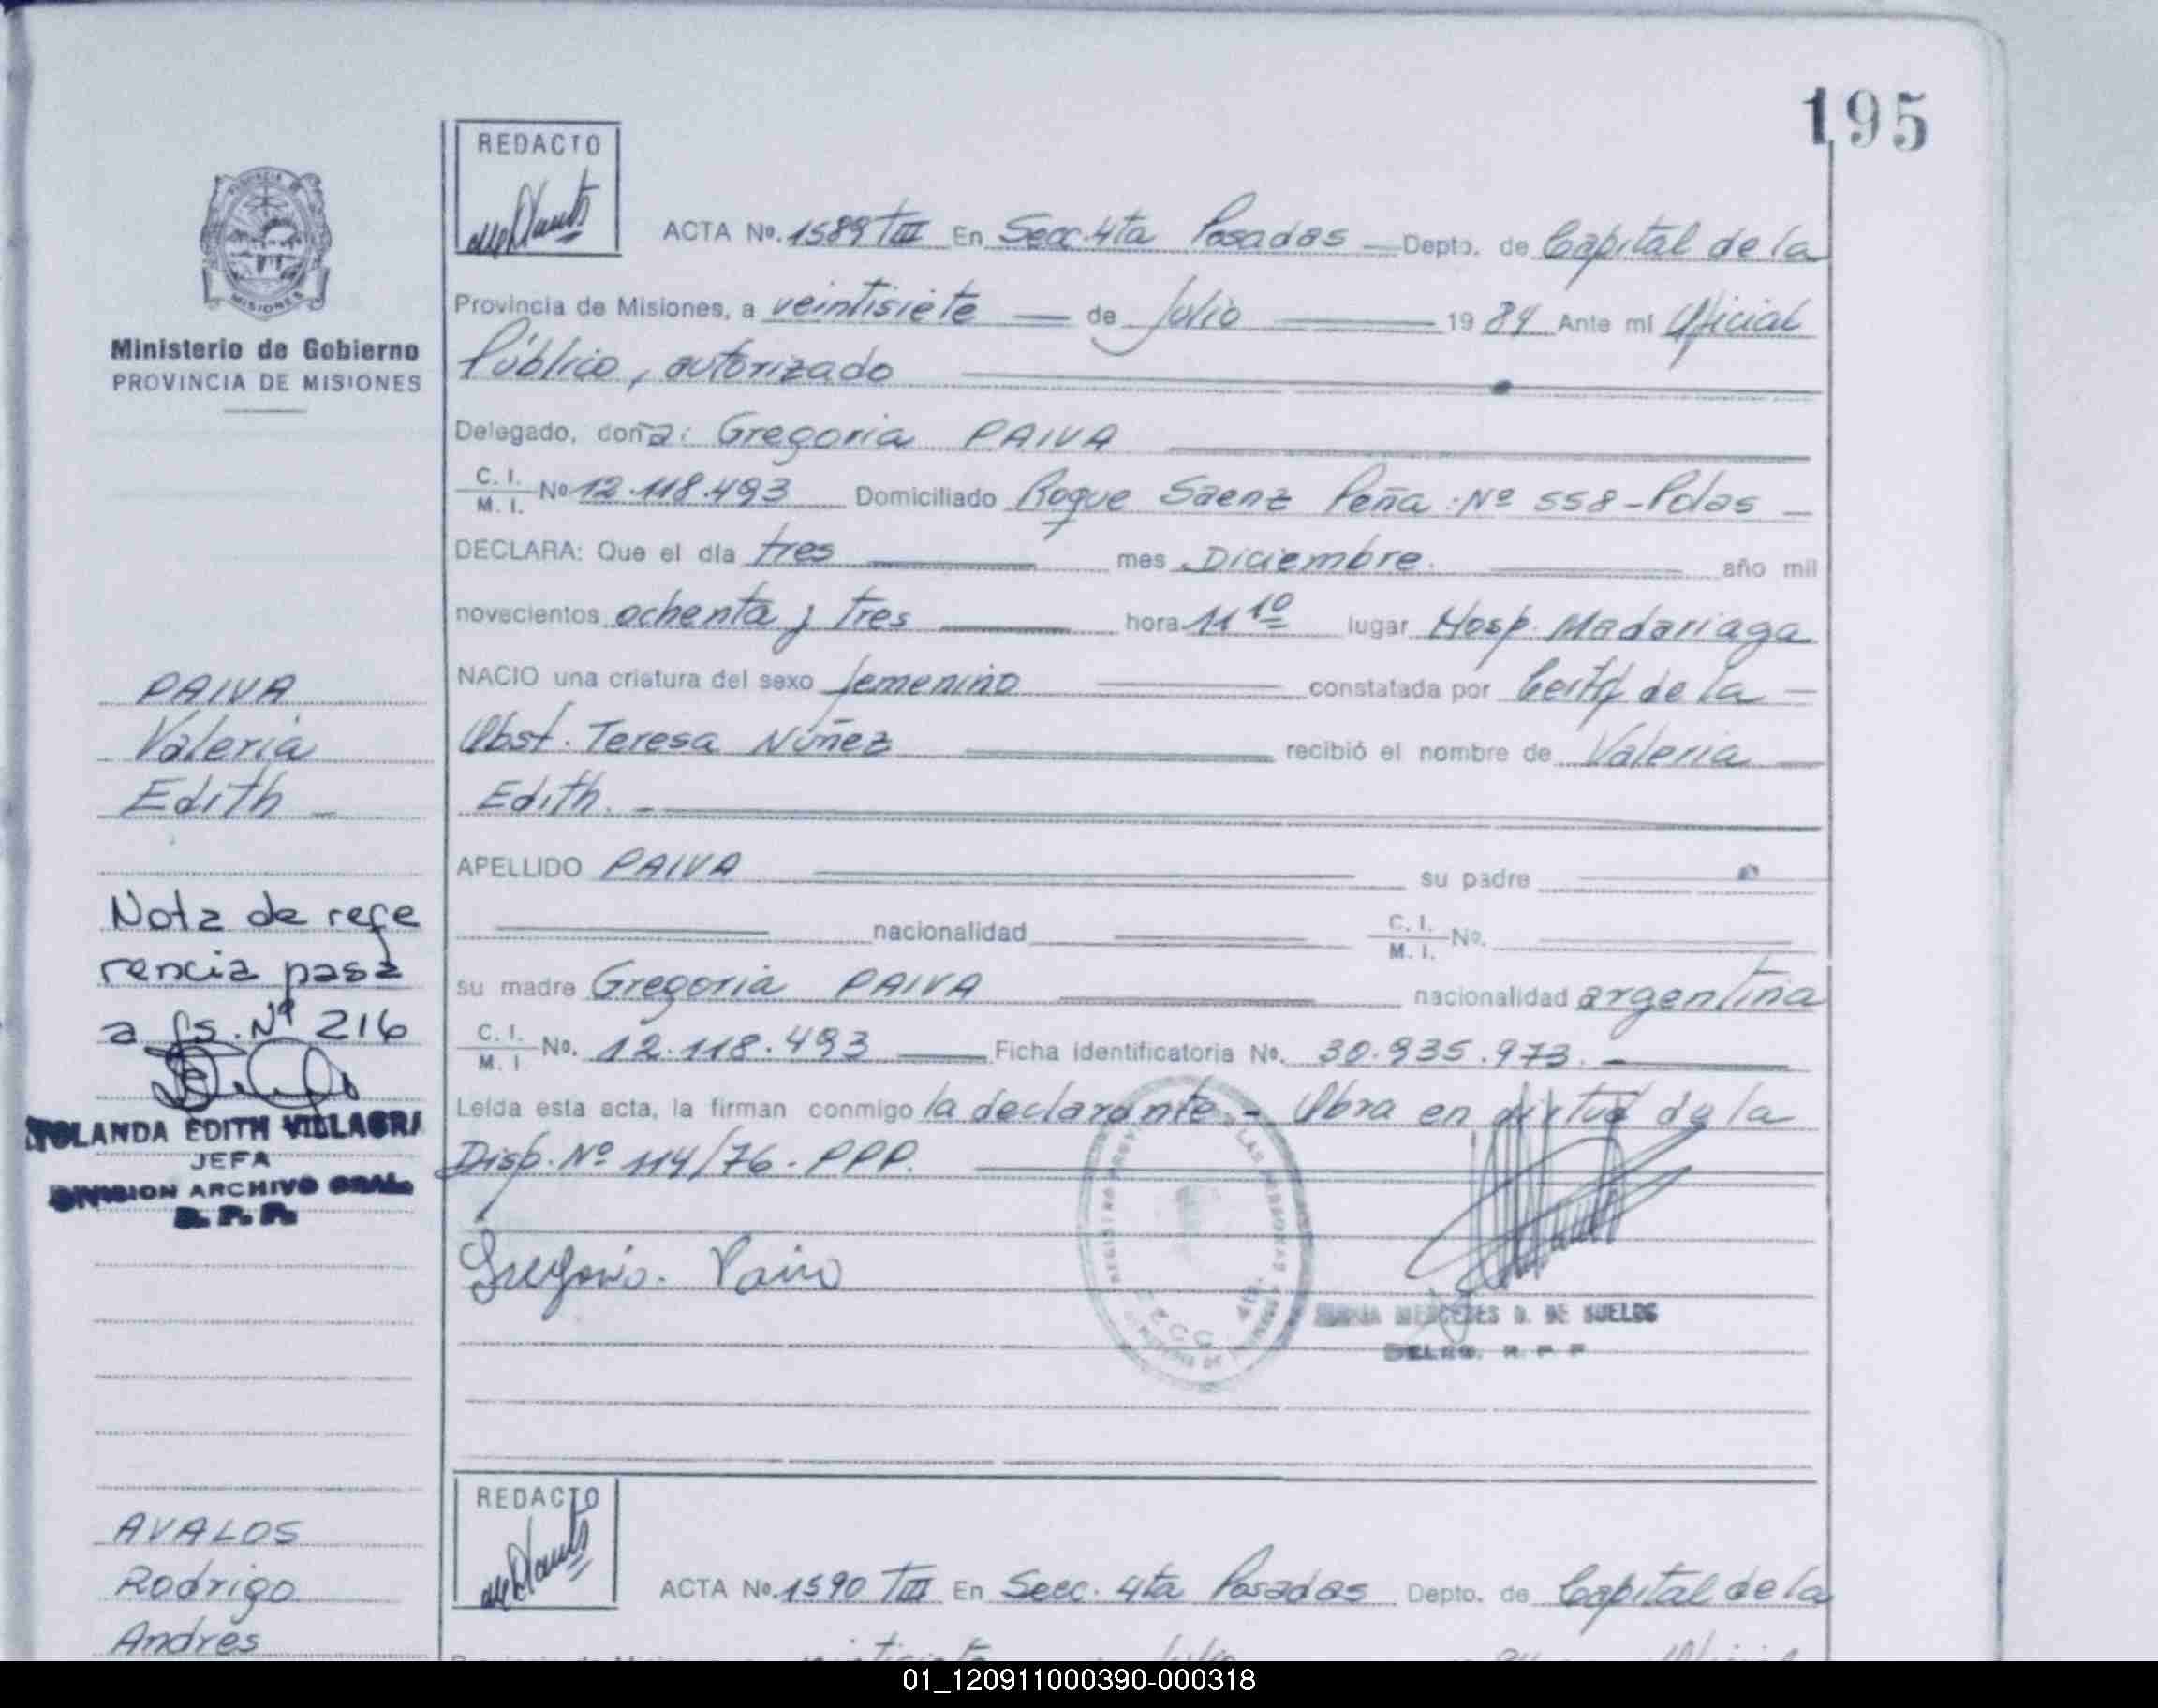 195
REDACTO
ACTA Nº. 1589 TIII En Secc. 4ta Posadas — Depto. de Capital de la
Provincia de Misiones, a veintisiete — de Julio — 19 84 Ante mi Oficial
Público, autorizado
Delegado, doña: Gregoria PAIVA
C. I. M. I. Nº 12.118.493 Domiciliado Roque Saenz Peña: Nº 558 - Pdas —
DECLARA: Que el día tres — mes Diciembre. — año mil
novecientos ochenta y tres — hora 11 10 lugar Hosp. Madariaga
NACIO una criatura del sexo femenino — constatada por Certf de la —
Obst. Teresa Núñez — recibió el nombre de Valeria —
Edith. —
APELLIDO PAIVA — su padre —
— nacionalidad — C. I. M. I. Nº. —
su madre Gregoria PAIVA — nacionalidad argentina
C. I. M. I Nº. 12.118.493 — Ficha Identificatoria Nº. 30.935.973. —
Leída esta acta, la firman conmigo la declarante - Obra en virtud de la
Disp. Nº 114/76 - PPP. —
Gregoria. Paiva
MERCEDES D. DE SUELDO
DELEG. R. P. P
Ministerio de Gobierno
PROVINCIA DE MISIONES
PAIVA
Valeria
Edith —
Nota de refe
rencia pasa
a fs. Nº 216
YOLANDA EDITH VILLAGRA
JEFA
DIVISION ARCHIVO GRAL.
R. P. P.
REDACTO
ACTA Nº. 1590 TIII En Secc. 4ta Posadas Depto. de Capital de la
AVALOS
Rodrigo
Andres
01_120911000390-000318